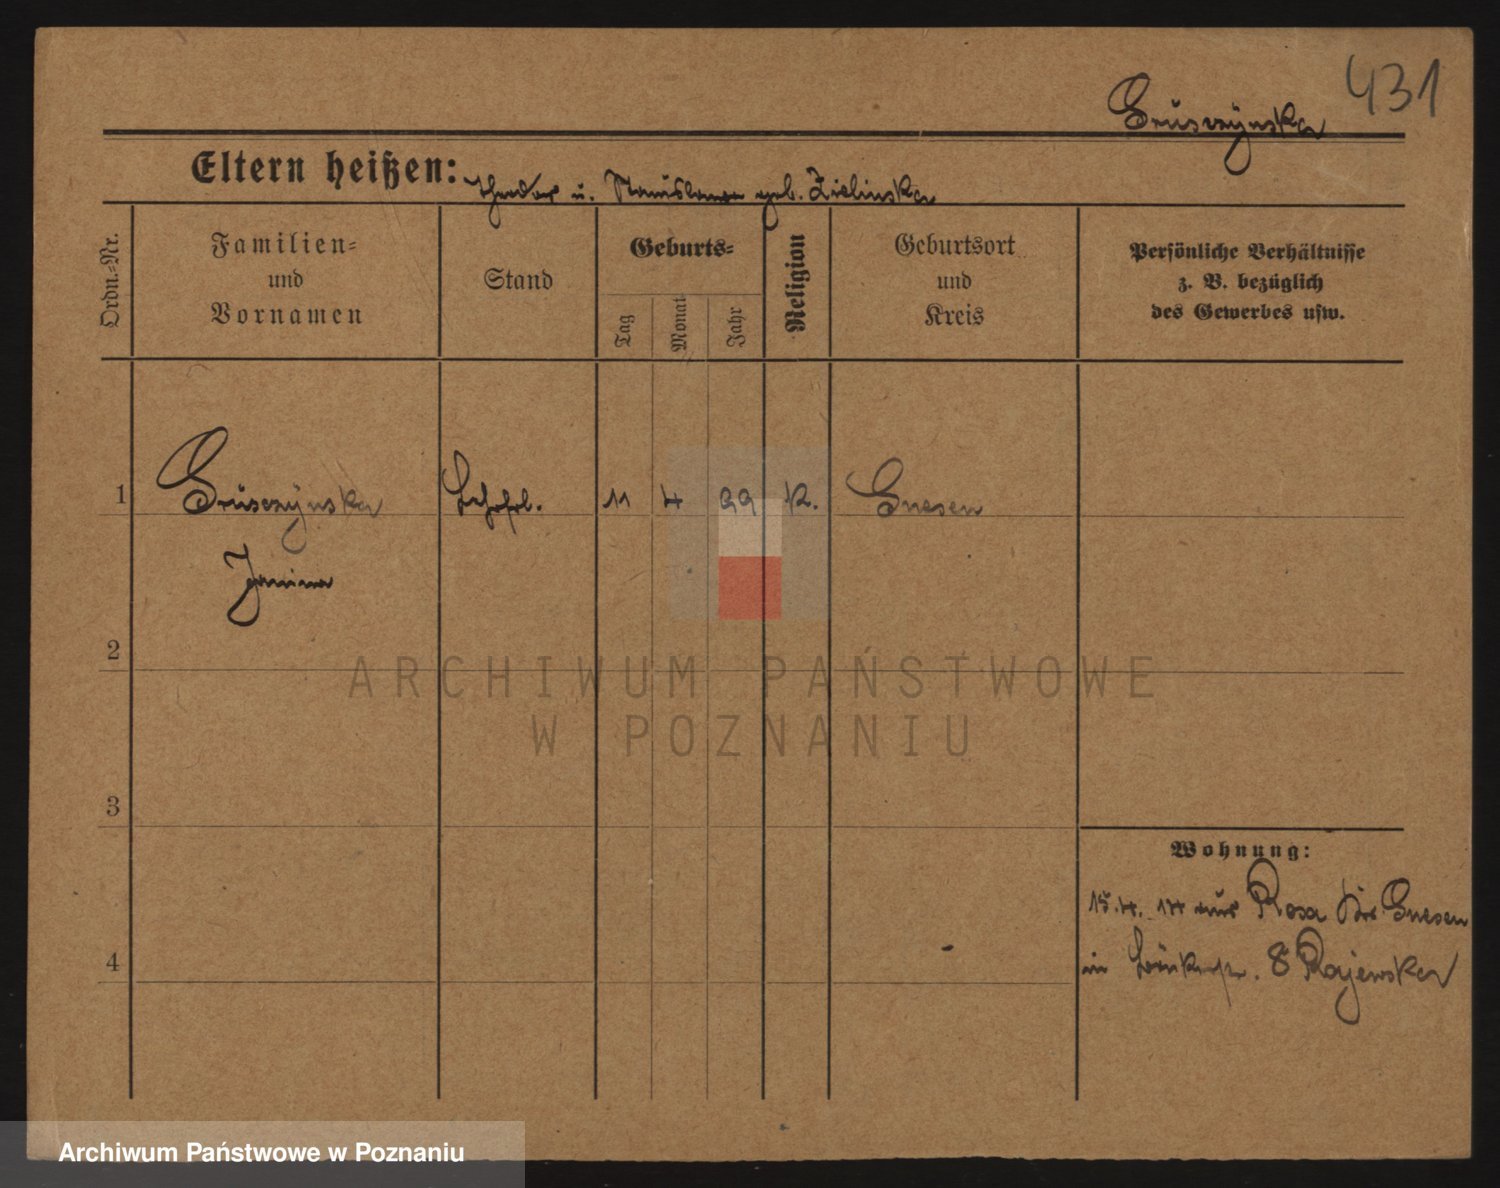 431
Gruszynska
Eltern heißen: Theodor u. Stanislawa geb. Zielinska
Ordn.-Nr.
Familien-
und
Vornamen
Stand
Geburts-
Tag
Monat
Jahr
Religion
Geburtsort
und
Kreis
Persönliche Verhältnisse
z. B. bezüglich
des Gewerbes usw.
1 Grusczynska 11 4 99 K. Gnesen
Janina
2
ARCHIWUM PAŃSTWOWE
W POZNANIU
3
Wohnung:
15.4. 14 aus Rosa Gnesen
4
in 8 Rajewska
Archiwum Państwowe w Poznaniu